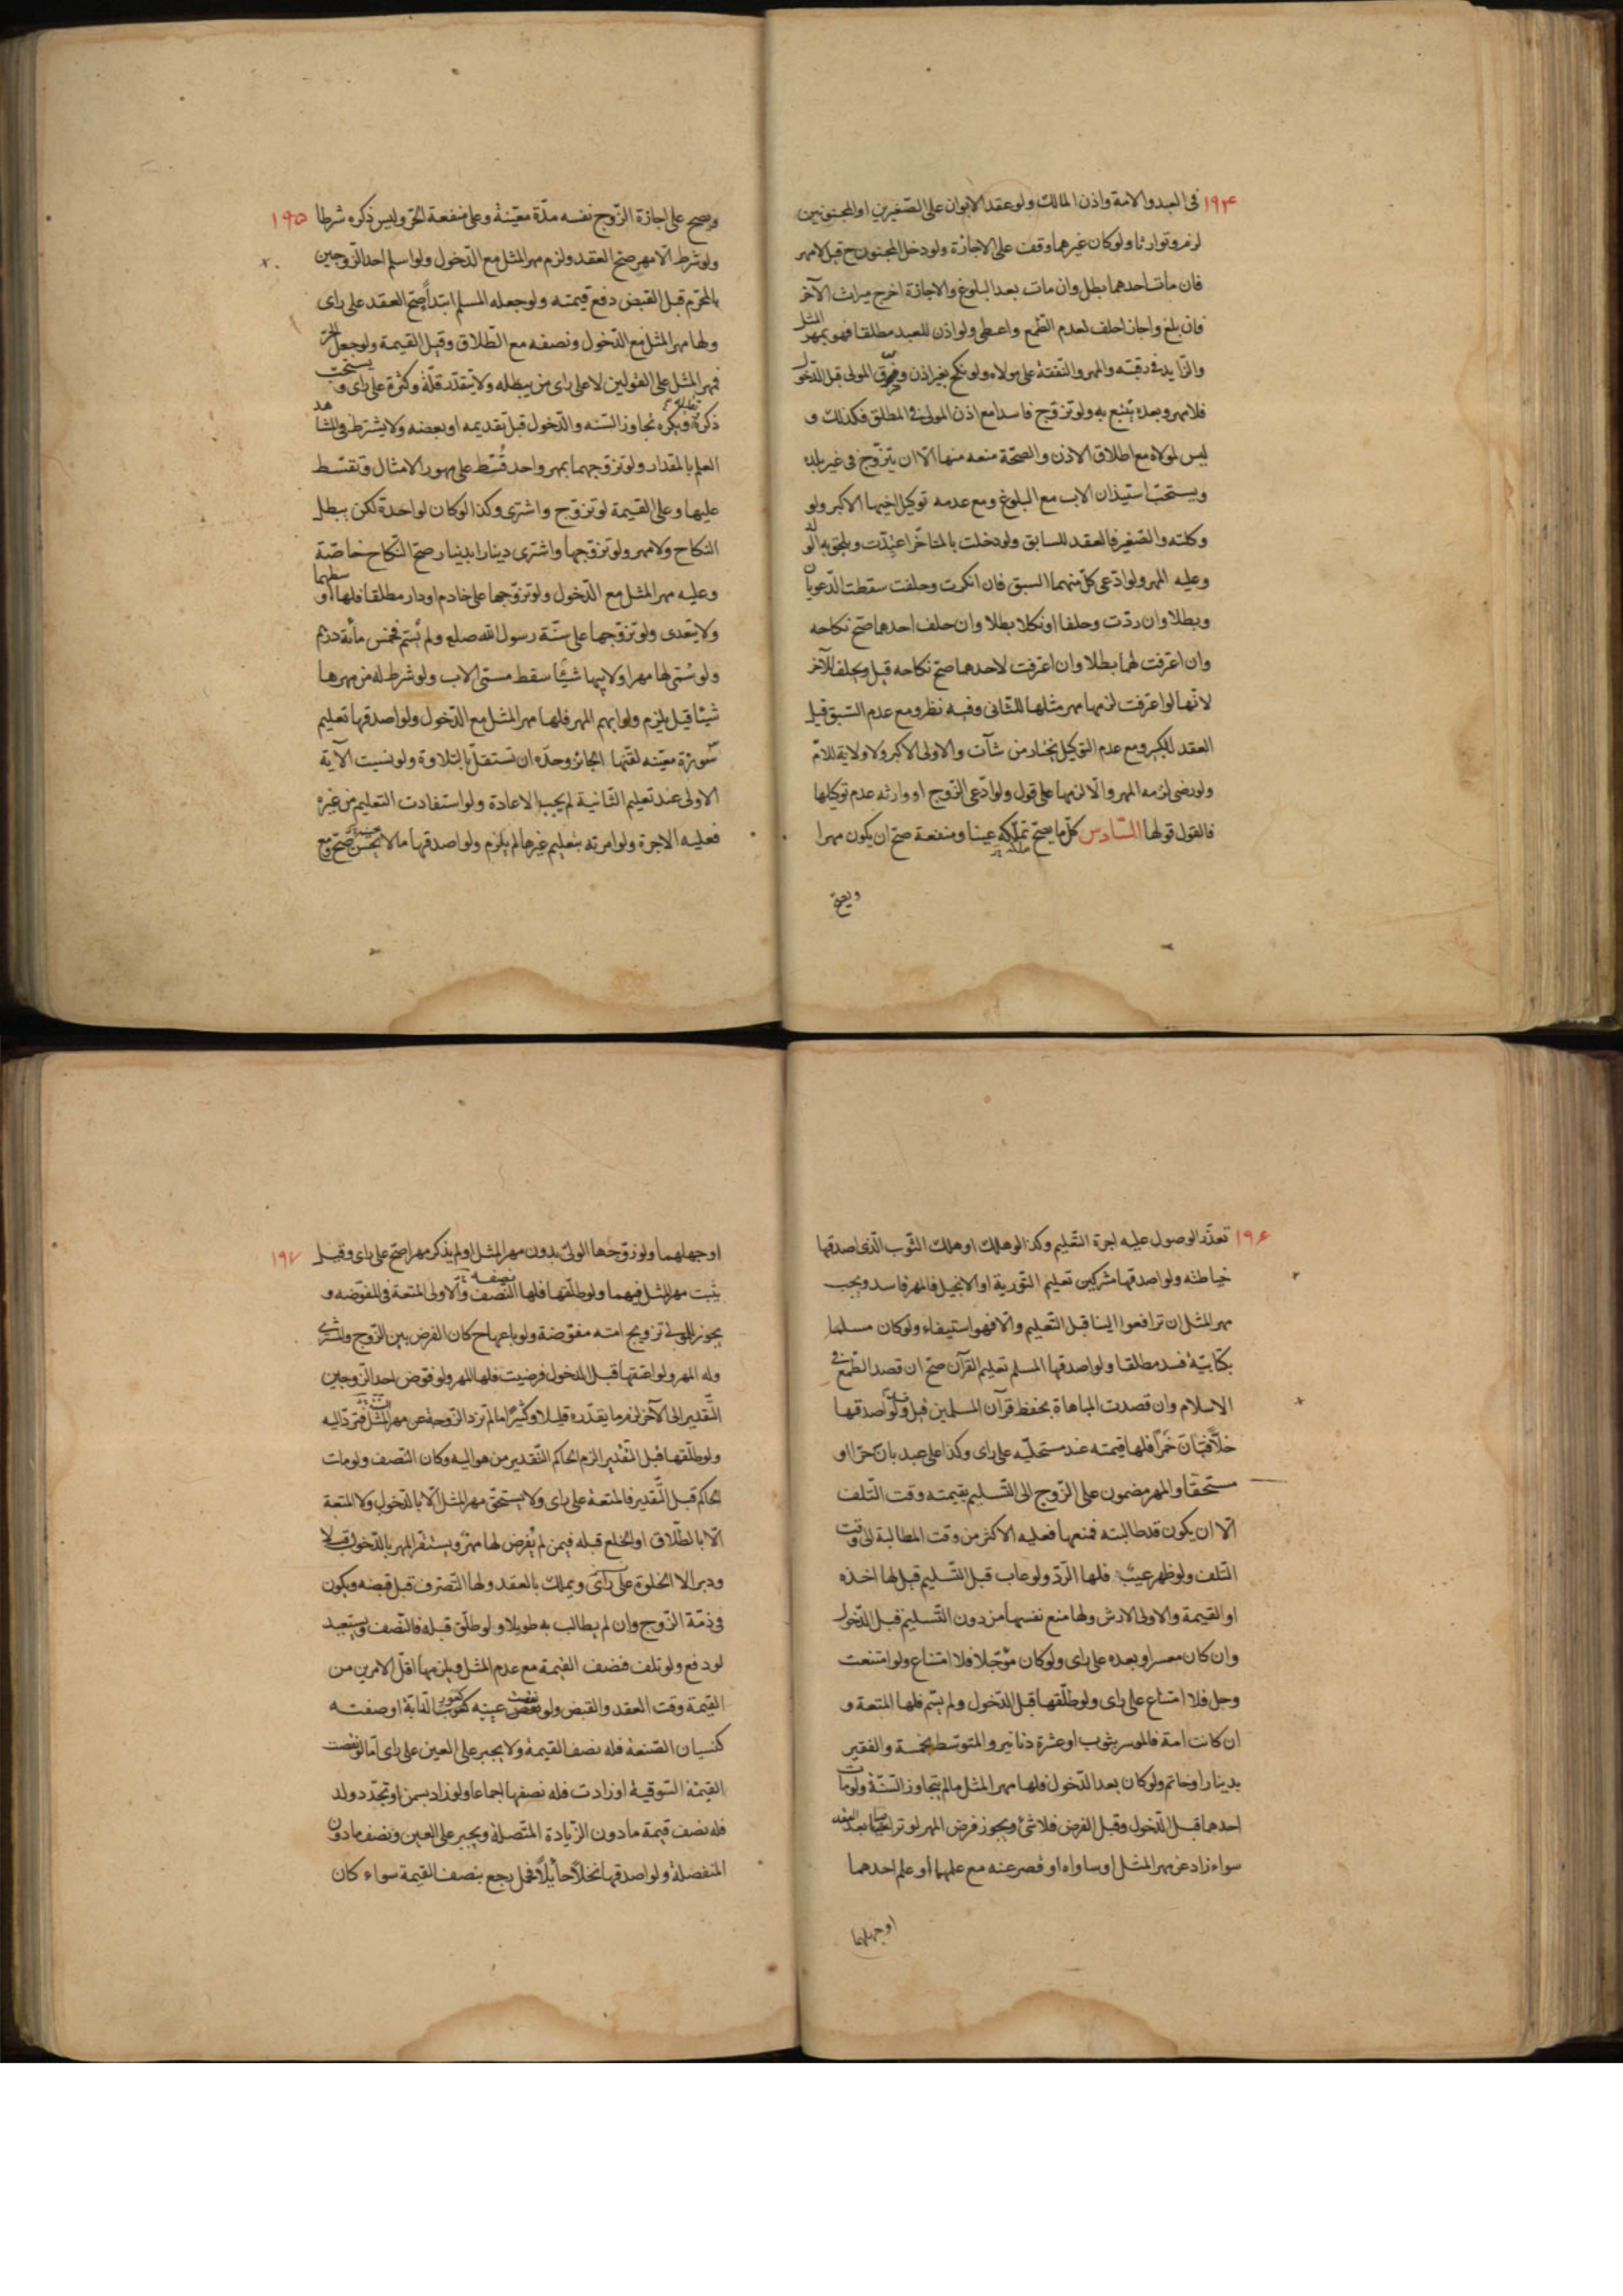 ١٩٤ فى العبد والامة واذن المالك ولو عقد الابوان على الصّغيرين او المجنونين
لزم وتوارثا ولو كان غيرهما وقف على الاجازة ولو دخل المجنون ح قبل لا مهر
فان مات احدهما بطل وان مات بعد البلوغ والاجازة اخرج ميراث الآخر
فان بلغ واجاز احلف لعدم الطّمع واعطى ولو اذن للعبد مطلقا فهو بمهر المثل
والزّايد فى رقبته والمهر والنّفقة على مولاه ولو نكح بغير اذن وفرّق المولى قبل الدّخول
فلا مهر وبعده يتبع به ولو تزوّج فاسدا مع اذن المولى فى المطلق فكذلك و
ليس لمولاه مع اطلاق الاذن والصّحّة منعه منها الّا ان يتزوّج فى غير بلده
ويستحبّ استيذان الاب مع البلوغ ومع عدمه توكيل اخيها الاكبر ولو
وكلته والصّغير فالعقد للسابق ولو دخلت بالمتاخّر اعتدّت ويلحق به الولد
وعليه المهر ولو ادّعى كلّ منهما السبق فان انكرت وحلفت سقطت الدّعويان
وبطلا وان ردّت وحلفا او نكلا بطلا وان حلف احدهما صحّ نكاحه
وان اعترفت لهما بطلا وان اعترفت لاحدهما صحّ نكاحه قيل ويحلف للآخر
لانّها لو اعترفت لزمها مهر مثلها للثّانى وفيه نظر ومع عدم السّبق قيل
العقد للكبير ومع عدم التوكيل تختار من شآت والاولى الاكبر ولا ولاية للامّ
ولو رضى لزمه المهر والّا لزمها على قول ولو ادّعى الزّوج او وارثه عدم توكيلها
فالقول قولها السّادس كلّ ما يصحّ تملّكه عينا ومنفعة صحّ ان يكون مهرا
ويصحّ
ويصح على اجازة الزّوج نفسه مدّة معيّنة وعلى منفعة الحرّ وليس ذكره شرطا ١٩٥
ولو شرط الّا مهر صحّ العقد ولزم مهر المثل مع الدّخول ولو اسلم احد الزّوجين
بالمحرّم قبل القبض دفع قيمته ولو جعله المسلم ابتداً صحّ العقد على راى
ولها مهر المثل مع الدّخول ونصفه مع الطّلاق وقيل القيمة ولو جعل الحرّ
فمهر المثل على القولين لا على راى من يبطله ولا يتقدّر قلّة وكثرة على راى ويستحبّ
ذكره ويكره تجاوز السّنه والدّخول قبل تقديمه او بعضه ولا يشترط فى المشاهد
العلم بالمقدار ولو تزوّجهما بمهر واحد قُسّط على مهور الامثال وتقسّط
عليها وعلى القيمة لو تزوّج واشترى وكذا لو كان لواحدة لكن يبطل
النكاح ولا مهر ولو تزوّجها واشترى دينارا بدينار صحّ النّكاح خاصّة
وعليه مهر المثل مع الدّخول ولو تزوّجها على خادم او دار مطلقا فلها اوسطهما
ولا يتعدى ولو تزوّجها على سُنّة رسول الله صلع ولم يُسَمّ فخمس مأئة درهم
ولو سُمّى لها مهرا ولابيها شيئًا سقط مسمّى الاب ولو شرط له من مهرها
شيئا قيل يلزم ولو ابهم المهر فلها مهر المثل مع الدّخول ولو اصدقها تعليم
سُورة معيّنه لقّنها الجائز وحدّه ان تستقلّ بالتلاوة ولو نسيت الآية
الاولى عند تعليم الثّانية لم يجب الاعادة ولو استفادت التعليم من غيره
فعليه الاجرة ولو امرته بتعليم غيرها لم يلزم ولو اصدقها ما لا يُحسن صحّ ومع
١٩٦ تعذّر الوصول عليه اجرة التّعليم وكذا لو هلك او هلك الثّوب الّذى اصدقها
خياطته ولو اصدقها مشركين تعليم التّورية او الانجيل فالمهر فاسد ويجب
مهر المثل ان ترافعوا الينا قبل التّعليم والّا فهو استيفاء ولو كان مسلما
بكتابيّة فسد مطلقا ولو اصدقها المسلم تعليم القرآن صحّ ان قصد الطّمع فى
الاسلام وان قصدت المباهاة بحفظ قرآن المسلمين قيل ولو اصدقها
خلًّا فبَانَ خَمْرًا فلها قيمته عند مستحليّه على راى وكذا على عبد بان حرّا او
مستحقّا والمهر مضمون على الزّوج الى التّسليم بقيمته وقت التّلف
الّا ان يكون قد طالبته فمنعها فعليه الاكثر من وقت المطالبة الى وقت
التلف ولو ظهر عيبٌ فلها الرّدّ ولو عاب قبل التّسليم قيل لها اخذه
او القيمة والاولى الارش ولها منع نفسها من دون التّسليم قبل الدّخول
وان كان معسرا وبعده على راى ولو كان مؤجّلا فلا امتناع ولو امتنعت
وحل فلا امتناع على راى ولو طلّقها قبل الدّخول ولم يسَّم فلها المتعة و
ان كانت امة فالموسر بثوب او عشرة دنانير والمتوسّط بخمسة والفقير
بدينار او خاتم ولو كان بعد الدّخول فلها مهر المثل ما لم يتجاوز السّنّة ولو مات
احدهما قبل الدّخول وقبل الفرض فلا شئ ويجوز فرض المهر لو تراضيا بعد العقد
سواء زاد عن مهر المثل او ساواه او قصر عنه مع علمهما او علم احدهما
او جهلهما
او جهلهما ولو زوّجها الولىّ بدون مهر المثل او لم يذكر مهرا صحّ على راى وقيل ١٩٧
يثبت مهر المثل فيهما ولو طلّقها فلها النّصف والّاولى المتعة فى المفوّضه و
يجوز للمولى تزويج امته مفوّضة ولو باعها ح كان الفرض بين الزّوج والمشترى
وله المهر ولو اعتقها قبل الدخول فرضيت فلها المهر ولو فوّض احد الزّوجين
التّقدير الى الآخر لزم ما يقدّره قليلا وكثيرًا ما لم تزد الزّوجة عن مهر المثل فتردّ اليه
ولو طلّقها قبل التّقدير الزم الحاكم التّقدير من هو اليه وكان النّصف ولو مات
الحاكم قبل التّقدير فالمتعة على راى ولا يستحقّ مهر المثل الّا بالدّخول ولا المتعة
الّا بالطّلاق او الخلع قبله فيمن لم يُفرض لها مهرٌ ويستقرّ المهر بالدّخول قبلا
ودبرا لا الخلوة على راى ويملك بالعقد ولها التّصرّف قبل قبضه ويكون
فى ذمّة الزّوج وان لم يطالب به طويلا ولو طلّق قبله فالنّصف ويستعيد
لو دفع ولو تلف فنصف القيمة مع عدم المثل ويلزمها اقلّ الامرين من
القيمة وقت العقد والقبض ولو نقصت عينه كعور الدّابّة او صفته
كنسيان الصّنعة فله نصف القيمة ولا يجبر على العين على راى امّا لو نقصت
القيمة السّوقية او زادت فله نصفها اجماعا ولو زاد بسمن او تجدّد ولد
فله نصف قيمة ما دون الزّيادة المتّصلة ويجبر على العين ونصف ما دون
المنفصلة ولو اصدقها نخلًا حايلًا فحمل رجع بنصف القيمة سواء كان